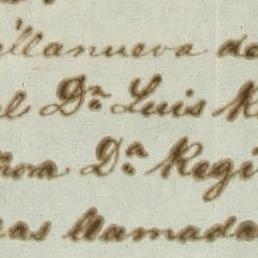 illanueva de
el Dn. Luis R
ñora Da. Regi
ras llamada